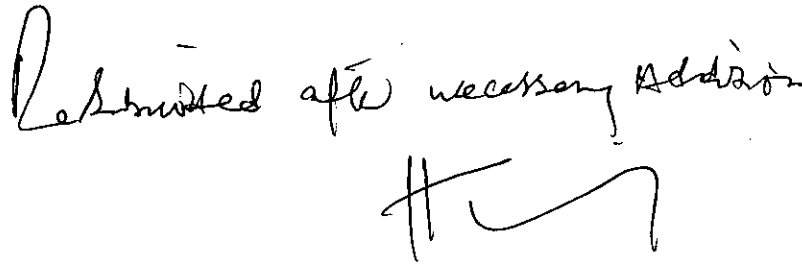 Resubmitted after necessary Addition